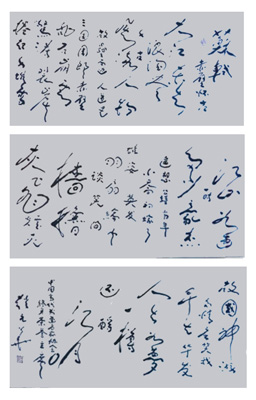 蘇軾
赤壁怀古
大江东去
浪淘尽
千古
风流人物
故垒西边人道是
三国周郎赤壁
乱石崩云
惊涛裂岸
捲起千堆雪
江山如画
一时
多少豪杰
遥想公瑾当年
小乔初嫁了
雄姿英发
羽扇纶巾
谈笑间
樯橹
灰飞烟灭
故國神游
多情应笑我
早生华发
人生如梦
一樽
还酹
江月